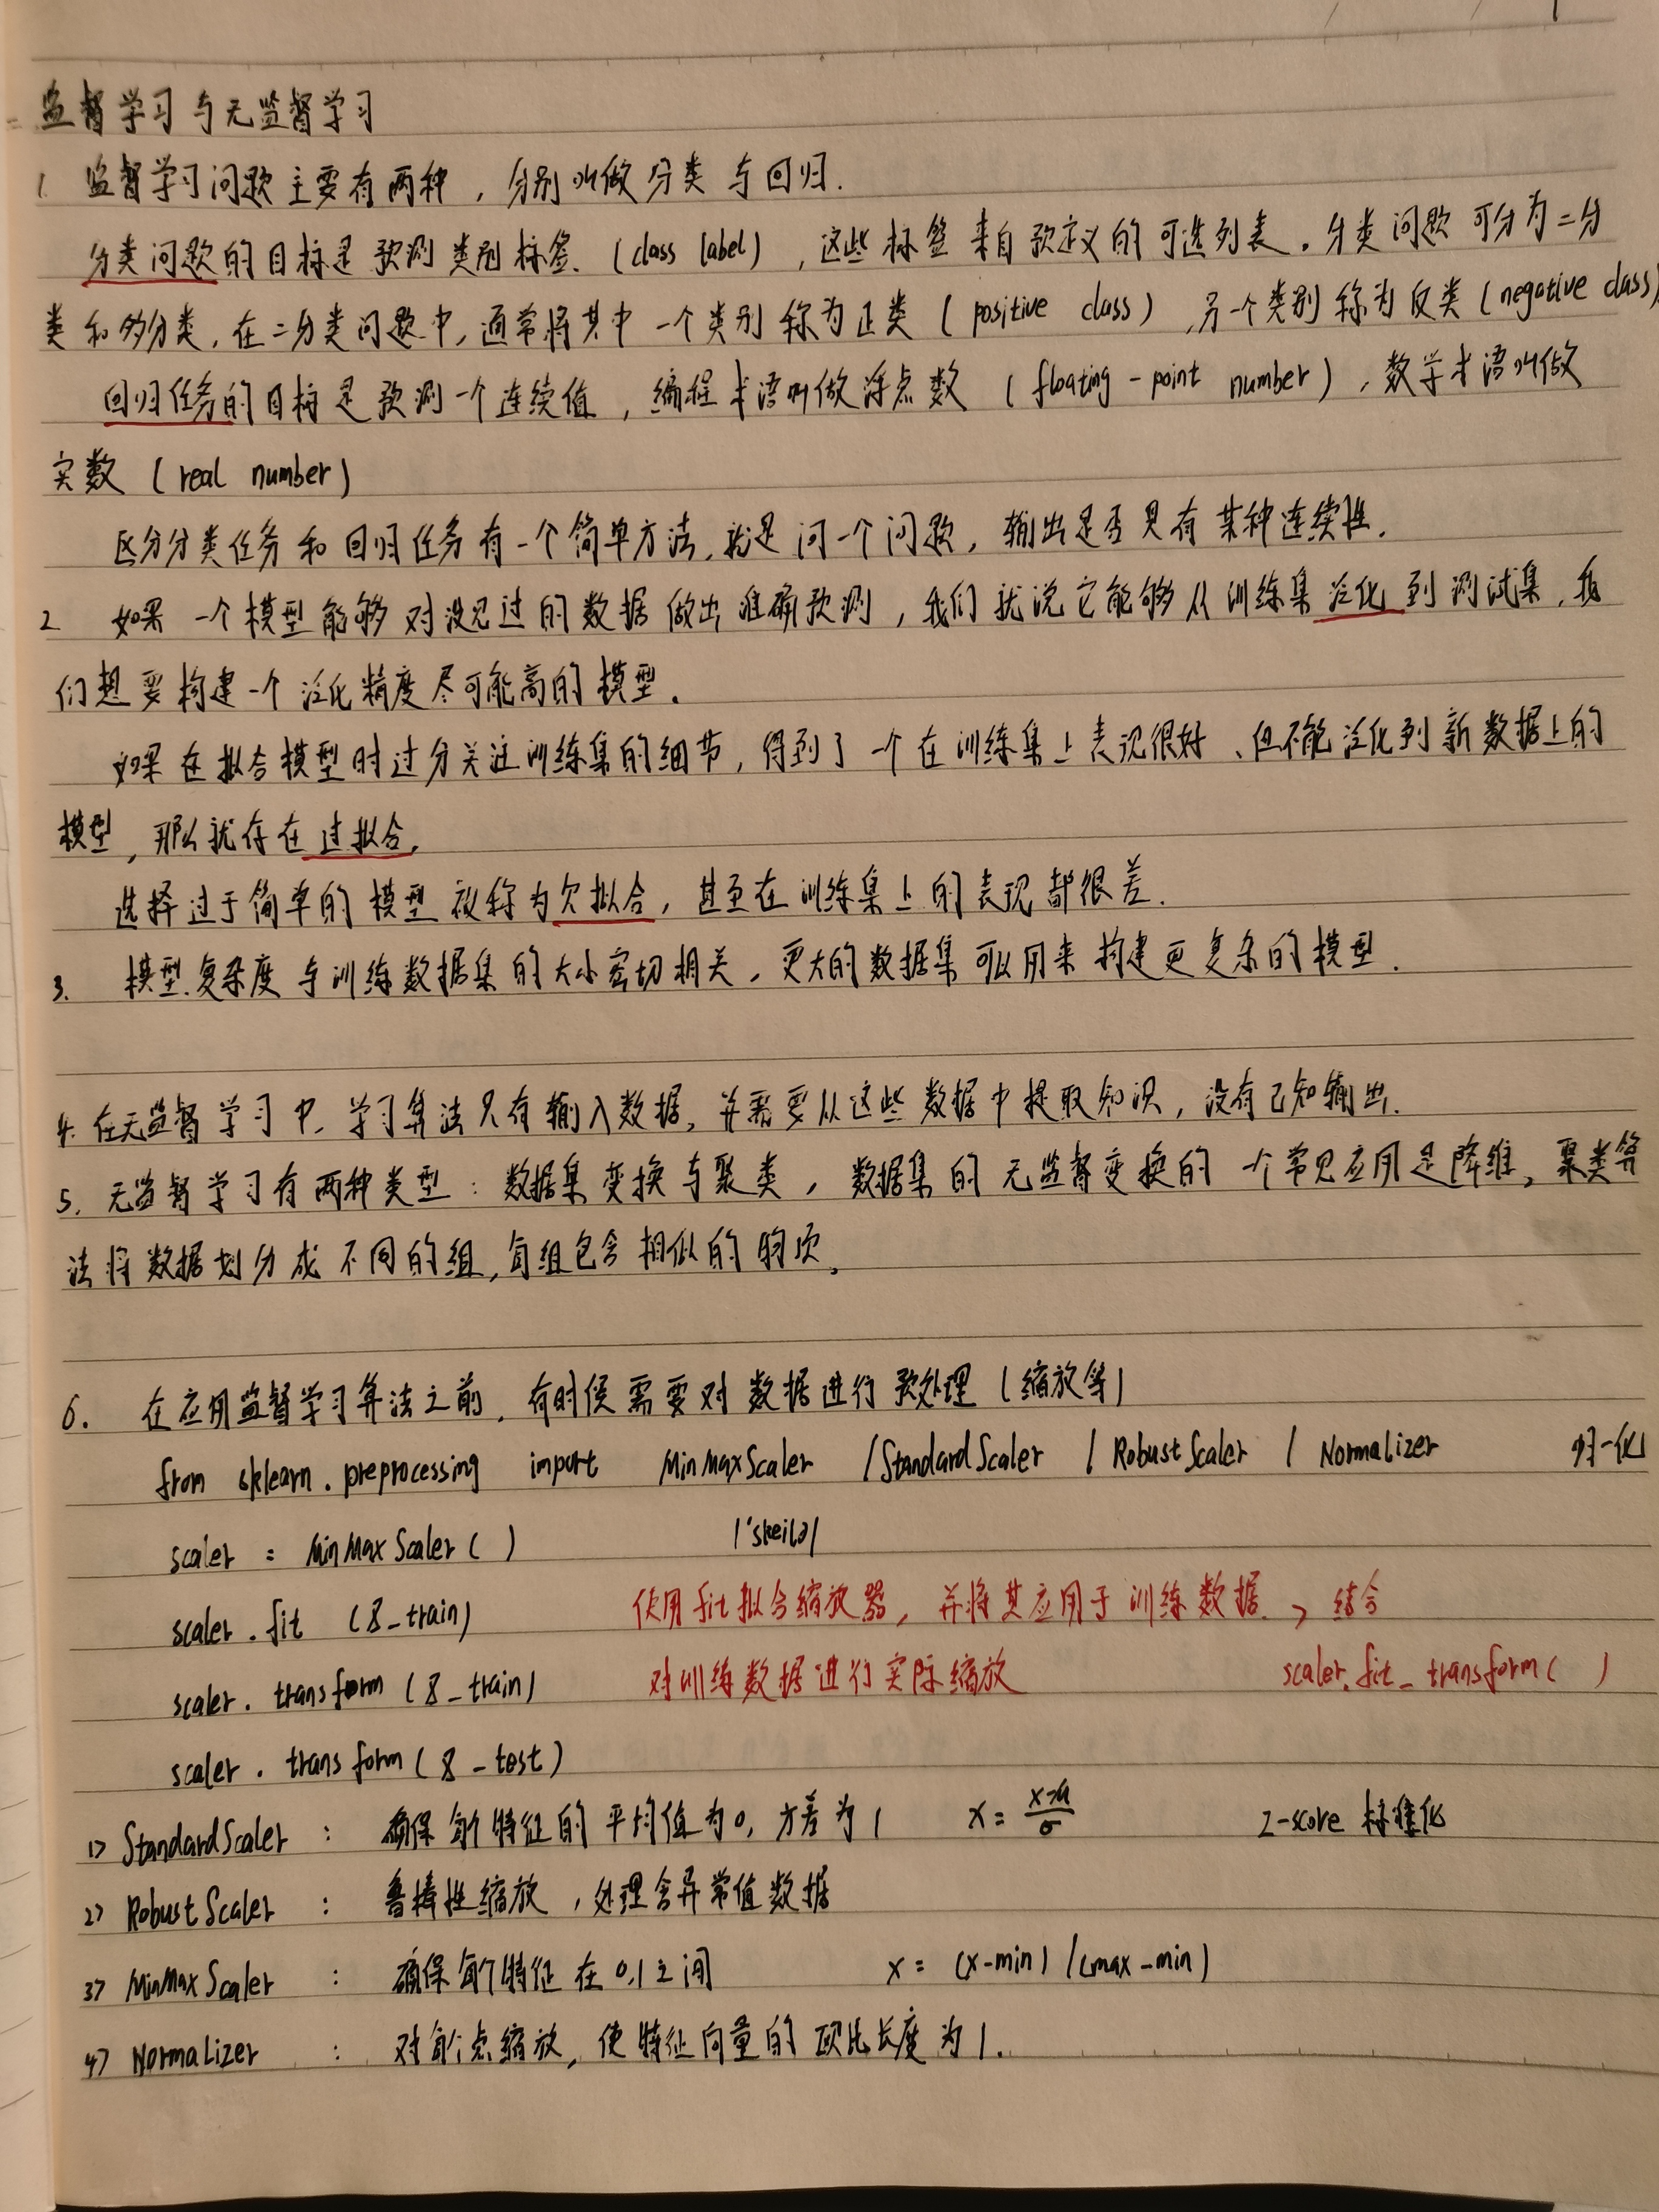 监督学习与无监督学习
1. 监督学习问题主要有两种，分别叫做分类与回归.
分类问题的目标是预测类别标签.(class label)，这些标签来自预定义的可选列表。分类问题可分为二分
类和多分类，在二分类问题中，通常将其中一个类别称为正类(positive class)，另一个类别称为反类(negative class)
回归任务的目标是预测一个连续值，编程术语叫做浮点数(floating-point number)，数学术语叫做
实数(real number)
区分分类任务和回归任务有一个简单方法，就是问一个问题，输出是否具有某种连续性.
2 如果一个模型能够对没见过的数据做出准确预测，我们就说它能够从训练集泛化到测试集，我
们想要构建一个泛化精度尽可能高的模型.
如果在拟合模型时过分关注训练集的细节，得到了一个在训练集上表现很好、但不能泛化到新数据上的
模型，那么就存在过拟合.
选择过于简单的模型被称为欠拟合，甚至在训练集上的表现都很差.
3. 模型复杂度与训练数据集的大小密切相关，更大的数据集可以用来构建更复杂的模型.
4. 在无监督学习中，学习算法只有输入数据，并需要从这些数据中提取知识，没有已知输出.
5. 无监督学习有两种类型：数据集变换与聚类，数据集的无监督变换的一个常见应用是降维，聚类算
法将数据划分成不同的组，每组包含相似的物项。
6. 在应用监督学习算法之前，有时候需要对数据进行预处理(缩放等)
from sklearn.preprocessing import MinMaxScaler / StandardScaler / RobustScaler / Normalizer 归一化
scaler = MinMaxScaler( ) /'skeilə/
scaler.fit (X_train) 使用fit拟合缩放器，并将其应用于训练数据. > 结合
scaler.transform (X_train) 对训练数据进行实际缩放 scaler.fit_transform( )
scaler.transform(X_test)
1> StandardScaler : 确保每个特征的平均值为0，方差为1 x = (x-μ)/σ Z-score 标准化
2> RobustScaler : 鲁棒性缩放，处理含异常值数据
3> MinMaxScaler : 确保每个特征在0,1之间 x = (x-min) / (max-min)
4> Normalizer : 对每个点缩放，使特征向量的欧氏长度为1.